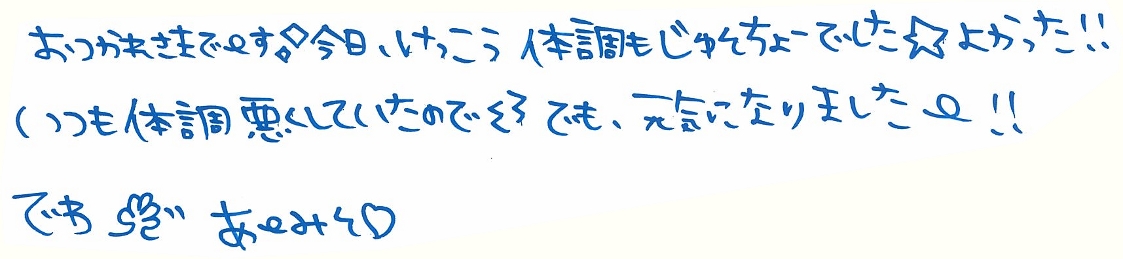 おつかれさまでです◇今日、けっこう体調もじゅんちょーでした☆よかった!!
いつも体調悪くしていたので でも、元気になりました !!
でわ あゆみ♡